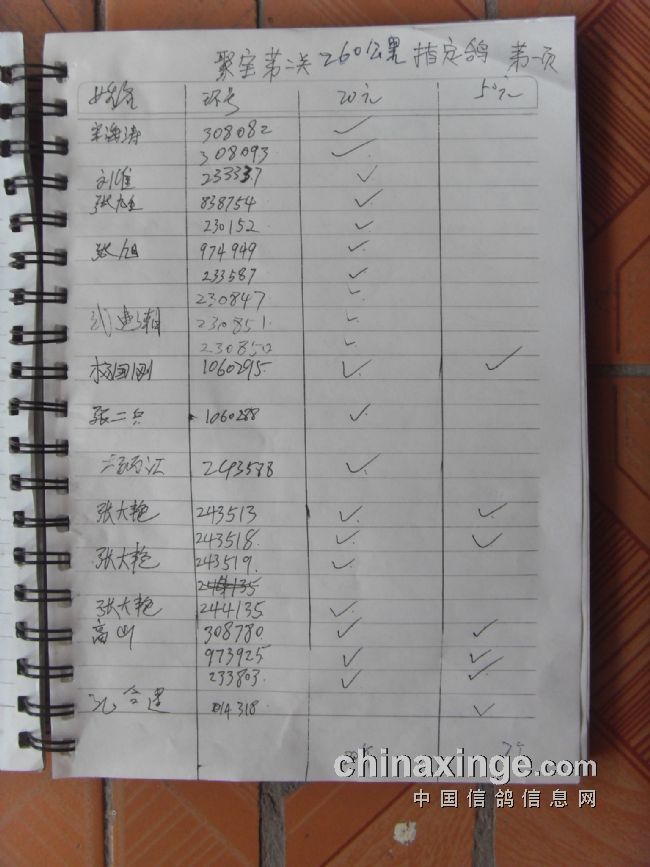 聚宝第二关260公里指定鸽 第一页
姓名 环号 20元 50元
308082 ✓
308093 ✓
刘维 233337 ✓
838754 ✓
230152 ✓
张旭 974949 ✓
233587 ✓
230847 ✓
230851 ✓
230850 ✓
杨国刚 1060295 ✓ ✓
张二兵 1060288 ✓
2243588 ✓
张大艳 243513 ✓ ✓
243518 ✓ ✓
张大艳 243519 ✓
张大艳 244135 ✓
高山 308780 ✓ ✓
973925 ✓ ✓
233803 ✓ ✓
014318 ✓
chinaxinge.com
中国信鸽信息网